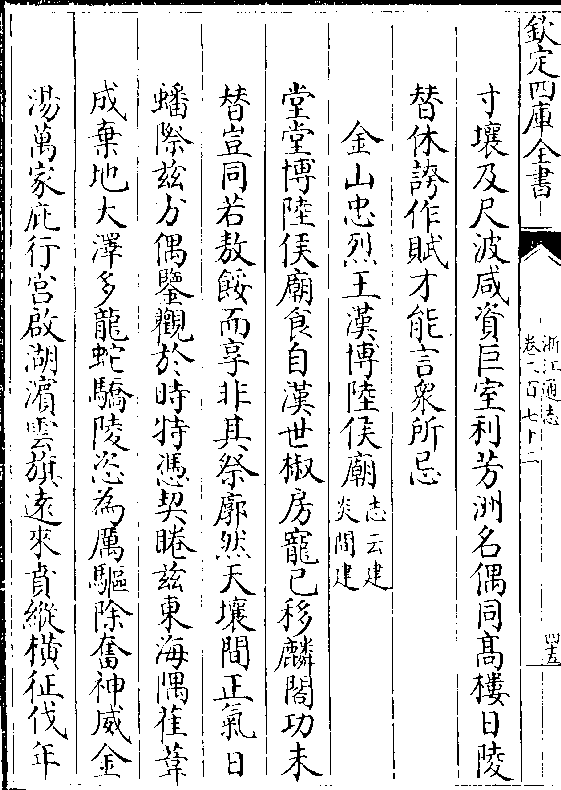 欽定四庫全書
浙江通志
卷二百七十二
四五
寸壤及尺波咸資巨室利芳洲名偶同髙樓日陵
替休誇作賦才能言衆所忌
金山忠烈王漢博陸侯廟志云建炎間建
堂堂博陸侯廟食自漢世椒房寵已移麟閣功未
替豈同若敖餒而享非其祭廓然天壤間正氣日
蟠際兹方偶鑒觀於時特憑契睠兹東海隅萑葦
成棄地大澤多龍蛇驕陵恣為厲驅除奮神威金
湯萬家庇行宫啟湖濵雲旗逺來賁縱横征伐年